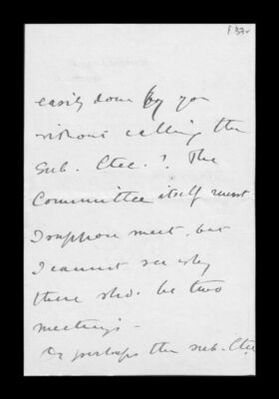 easily done by you
without calling the
Sub. Ctee.? The
Committee itself must
I suppose meet, but
I cannot see why
there shd. be two
meetings -
Or perhaps the sub-Ctee